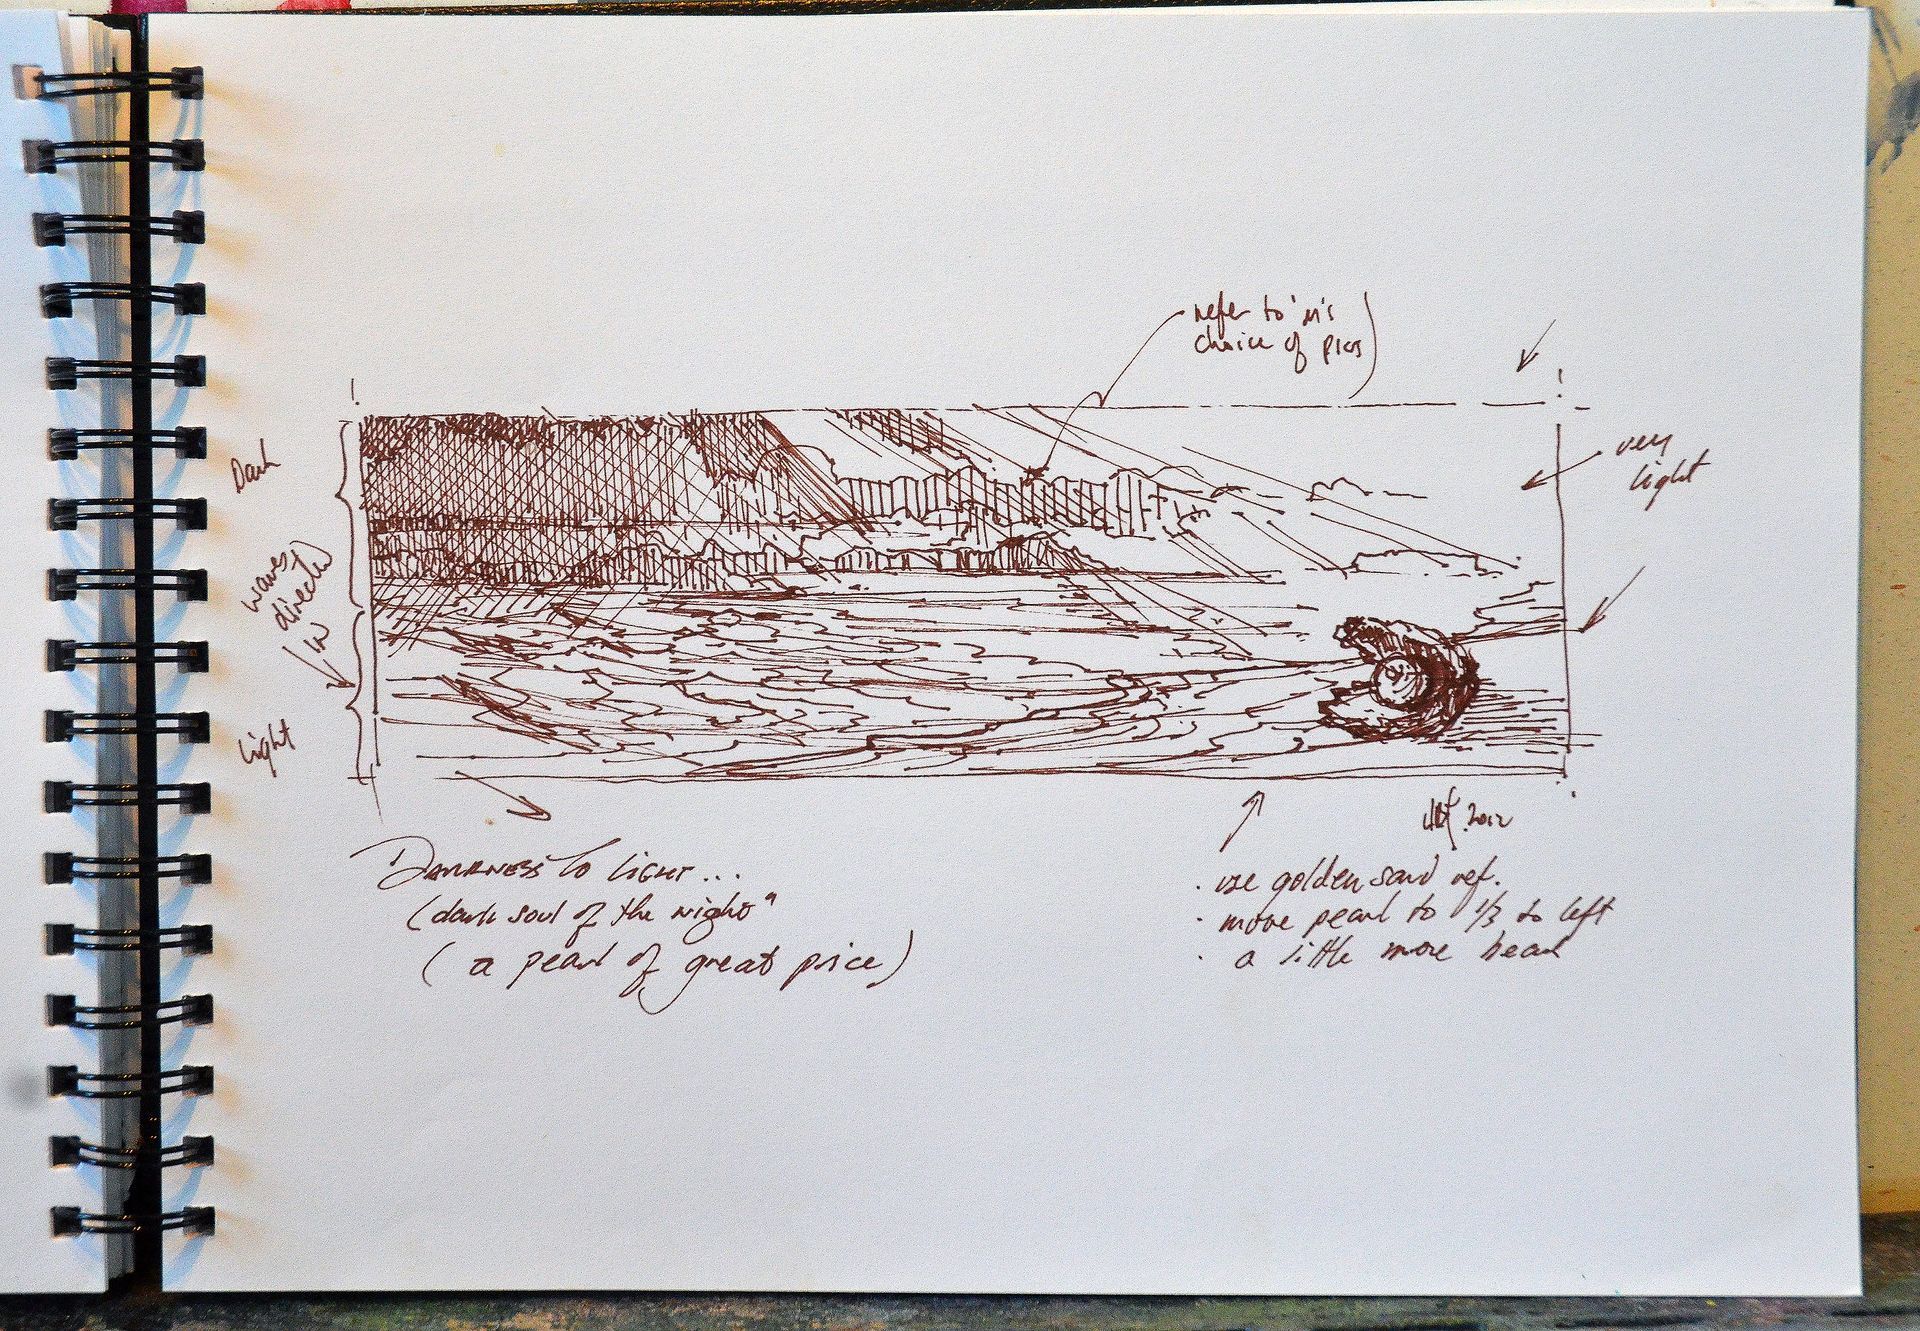 refer to 'M's
choice of pics)
very
light
Dark
waves
directed
in
light
2012
DARKNESS TO LIGHT...
(dark soul of the night"
(a pearl of great price)
. use golden sand ref.
. move pearl to 1/3 to left
. a little more